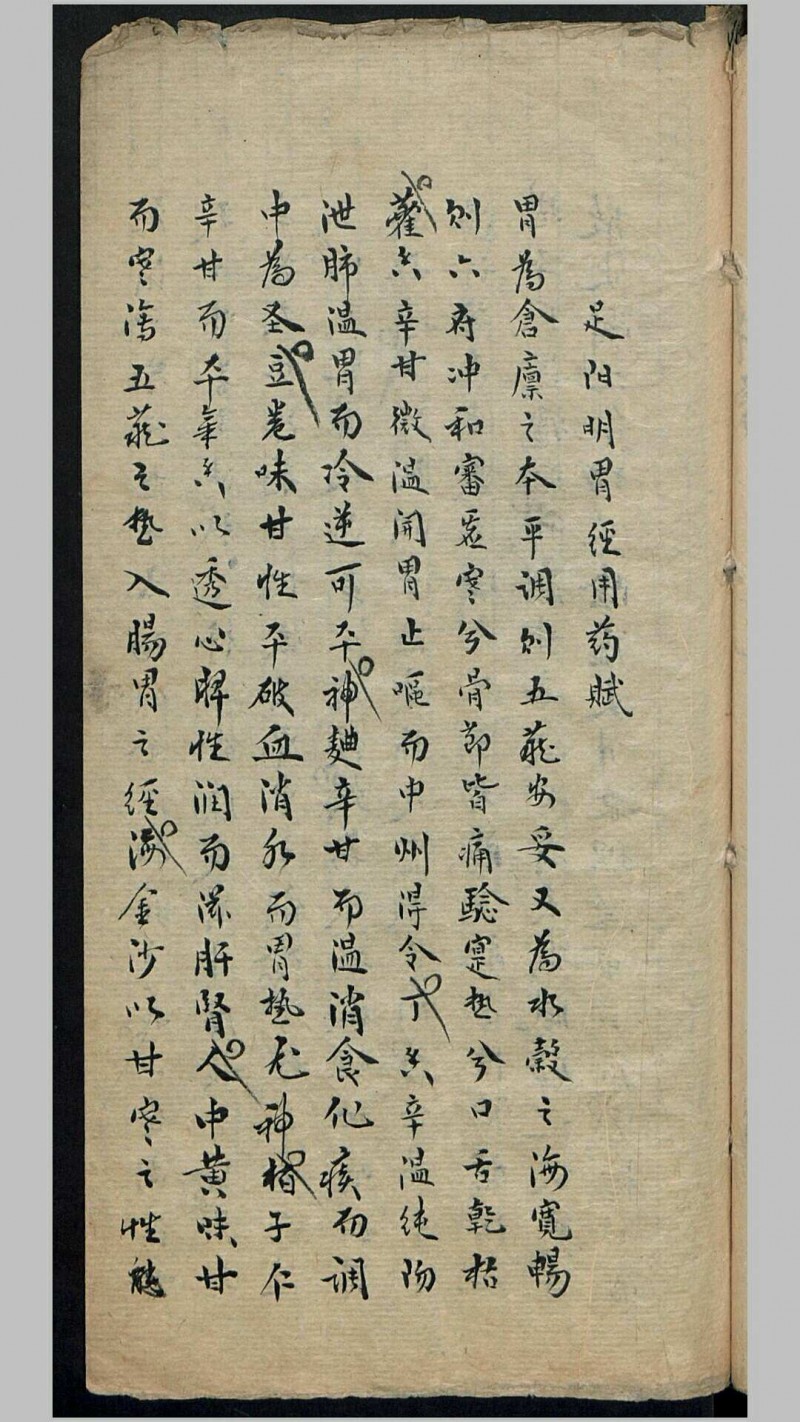 足阳明胃經用药賦
胃為倉廪之本平调则五莊安妥又為水穀之海寬暢
则六府冲和審虚寒兮骨節皆痛驗寔热兮口舌乾枯
藿香辛甘微温開胃止嘔而中州得令丁香辛温純陽
泄肺温胃而冷逆可平神麯辛甘而温消食化痰而调
中為圣荳蔻味甘性平破血消水而胃热尤神柏子仁
辛甘而平氣香以透心脾性润而滋肝腎人中黄味甘
而寒瀉五莊之热入腸胃之經海金沙以甘寒之性能